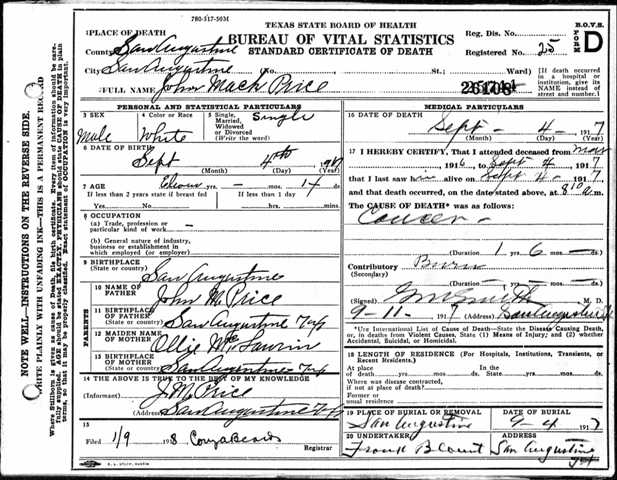 780-517-50M
TEXAS STATE BOARD OF HEALTH
BUREAU OF VITAL STATISTICS
STANDARD CERTIFICATE OF DEATH
Reg. Dis. No.
Registered No. 25
B.O.V.S.
FORM
D
1 PLACE OF DEATH
County San Augustine
City San Augustine No. St.; Ward)
[If death occurred in a hospital or institution, give its NAME instead of street and number.]
2 FULL NAME John Mack Price
PERSONAL AND STATISTICAL PARTICULARS
3 SEX
Male
4 Color or Race
White
5 Single, Married, Widowed or Divorced (Write the word)
Single
6 DATE OF BIRTH
Sept 4th
(Month) (Day) (Year)
7 AGE
Eleven yrs. – mos. ds.
If less than 2 years state if breast fed
If less than 1 day
Yes No hrs. mins.
8 OCCUPATION
(a) Trade, profession or particular kind of work
(b) General nature of industry, business or establishment in which employed (or employer)
9 BIRTHPLACE
(State or country)
San Augustine
PARENTS
10 NAME OF FATHER
John M Price
11 BIRTHPLACE OF FATHER
(State or country)
San Augustine
12 MAIDEN NAME OF MOTHER
Ollie
13 BIRTHPLACE OF MOTHER
(State or country)
San Augustine
14 THE ABOVE IS TRUE TO THE BEST OF MY KNOWLEDGE
(Informant) J M Price
(Address) San Augustine
15
Filed 1/9 1918
Registrar
MEDICAL PARTICULARS
16 DATE OF DEATH
Sept – 4 – 1917
(Month) (Day) (Year)
17 I HEREBY CERTIFY, That I attended deceased from
1916 to Sept 4 1917
that I last saw h alive on Sept 4 – 1917
and that death occurred, on the date stated above, at 8 m.
The CAUSE OF DEATH* was as follows:
Cancer –
(Duration) 1 yrs. 6 mos. – ds.
Contributory Burn
(Secondary)
(Duration) yrs. mos. ds.
(Signed) Smith, M. D.
9-11- 1917 (Address) San Augustine
*Use International List of Cause of Death—State the Disease Causing Death, or, in deaths from Violent Causes, State (1) Means of Injury; and (2) whether Accidental, Suicidal, or Homicidal.
18 LENGTH OF RESIDENCE (For Hospitals, Institutions, Transients, or Recent Residents.)
At place of death yrs. mos. ds. State yrs. mos. ds.
Where was disease contracted, if not at place of death?
Former or usual residence
19 PLACE OF BURIAL OR REMOVAL
San Augustine
DATE OF BURIAL
9-4 1917
20 UNDERTAKER
Frank Blount
ADDRESS
San Augustine
NOTE WELL—INSTRUCTIONS ON THE REVERSE SIDE.
WRITE PLAINLY WITH UNFADING INK—THIS IS A PERMANENT RECORD